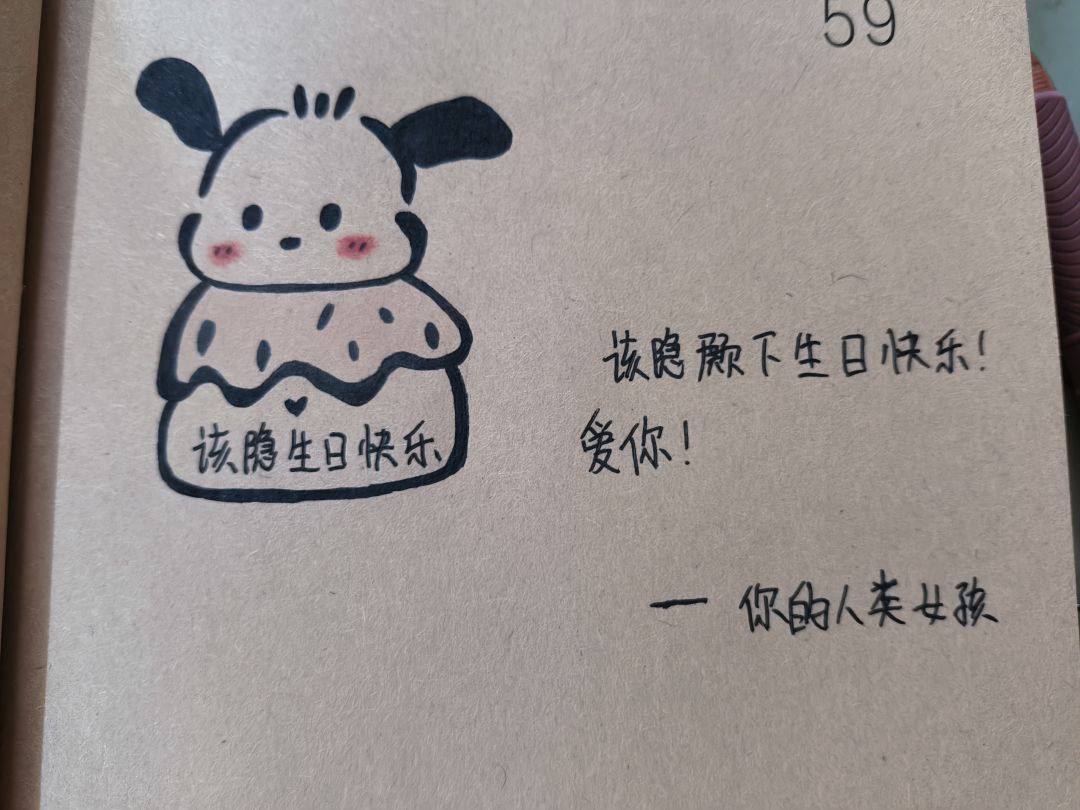 59
该隐殿下生日快乐!
爱你!
该隐生日快乐
— 你的人类女孩